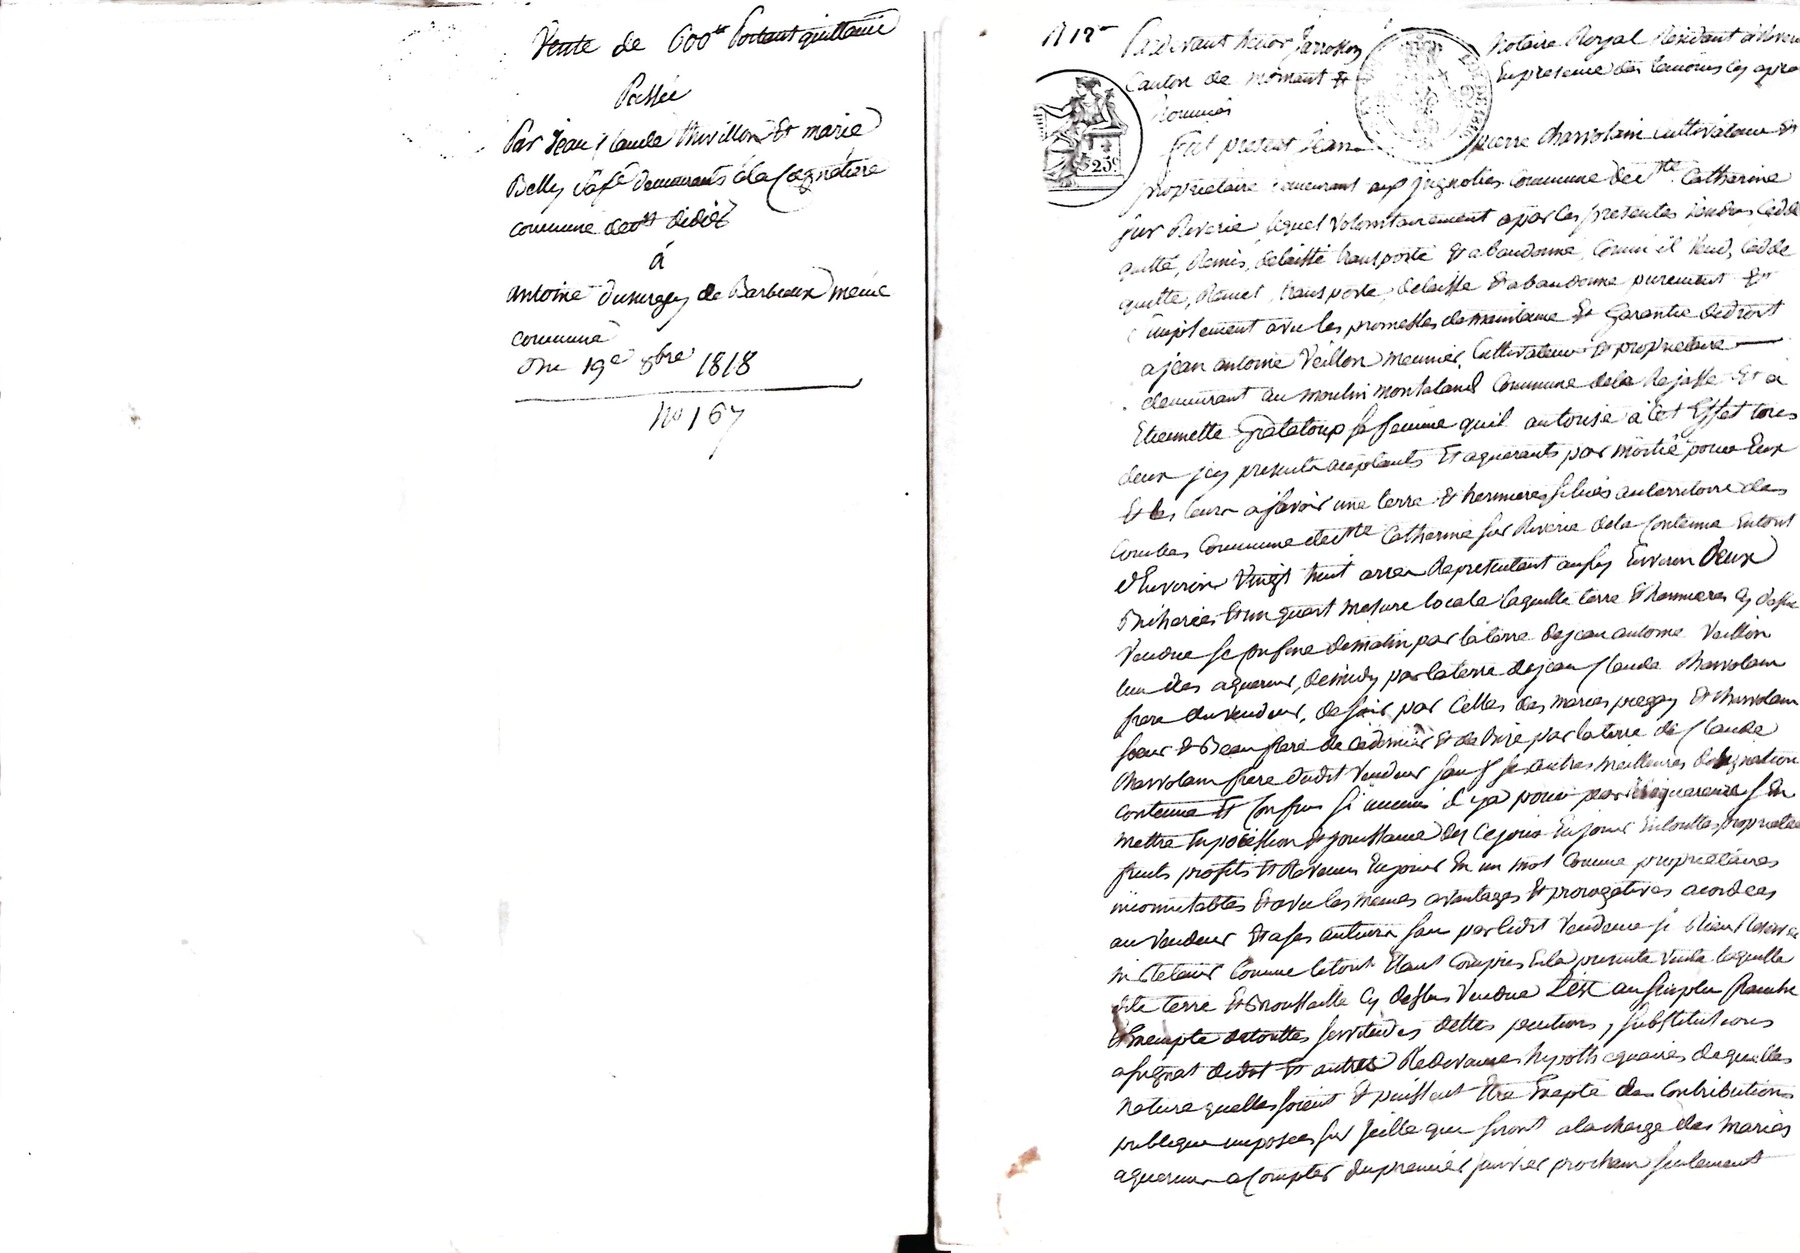 Vente de 600ᵗᵗ Portant quittance
Passée
Par Jean Claude thivillon Et marie
Belly sa fᵉ demeurants à la
commune de sᵗ didier
à
antoine de Barbieux même
commune
Du 19ᵉ 8bre 1818
Nº 167
Pardevant Notaire Royal Résidant à Riverie
Canton de mornant & En presence des temoins cy apres
Nommés
fut present Jean pierre Charvolain cultivateur &
proprietaire demeurant aux jugnoties Commune de sᵗᵉ Catherine
sur Riverie lequel volontairement a par les presentes Vendu, Cédé
quitté, Remis, délaissé transporté et abandonné, Comme il Vend, Cedde
quitte, Remet, transporte, delaisse & abandonne purement &
simplement avec les promesses de maintenue Et Garantie de droit
a jean antoine Veillon meunier, Cultivateur & proprietaire
demeurant au moulin montaland Commune de la Rajasse Et à
Etiennette Grataloup sa femme qu'il autorise à cet Effet tous
deux icy presents acceptants Et aquerants par moitié pour Eux
Et les leurs a savoir une terre & hermieres situés au territoire des
Combes Commune de sᵗᵉ Catherine sur Riverie de la Contenue En tout
d'Environ Vingt huit arres Representant Environ Deux
Bicherées Et un quart mesure locale laquelle terre & hermieres cy dessus
Vendue se Confine de matin par la terre de jean antoine Veillon
l'un des aquereurs, de midy par la terre de jean Claude Charvolain
frere du vendeur, de soir par Celles des maries Et Charvolain
soeur & Beau frere de ce dernier & de bize par la terre de Claude
Charvolain frere dudit Vendeur sauf ses autres meilleures designation
contenue Et Confins si aucuns il y a pour par les aquereurs s'En
mettre En possession & jouissance dez ce jour En jouir En touttes proprietés
fruits profits Et Revenus En jouir En un mot Comme propriétaires
incomutables Et avec les mêmes avantages Et prerogatives acordees
au Vendeur Et a ses auteurs sans par ledit Vendeur se Rien Reserver
ni Retenir Comme le tout Etant Compris En la presente Vente laquelle
dite terre Et Broussaille cy dessus Vendue L'est au franche
Exempte de touttes servitudes dettes pentions, substitutions
assignat de dot Et autres Redevances hypothequaires de quelles
Nature quelles soient & puissent Etre Excepté des Contributions
publique imposées sur Icelle qui seront a la charge des mariés
aquereurs a Compter du premier janvier prochain seulement